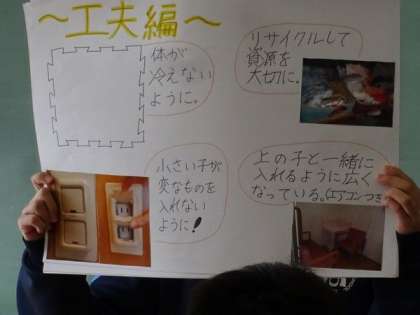 ～工夫編～
体が
冷えない
ように。
リサイクルして
資源を
大切に。
小さい子が
変なものを
入れない
ように!
上の子と一緒に
入れるように広く
なっている。(エアコンつき